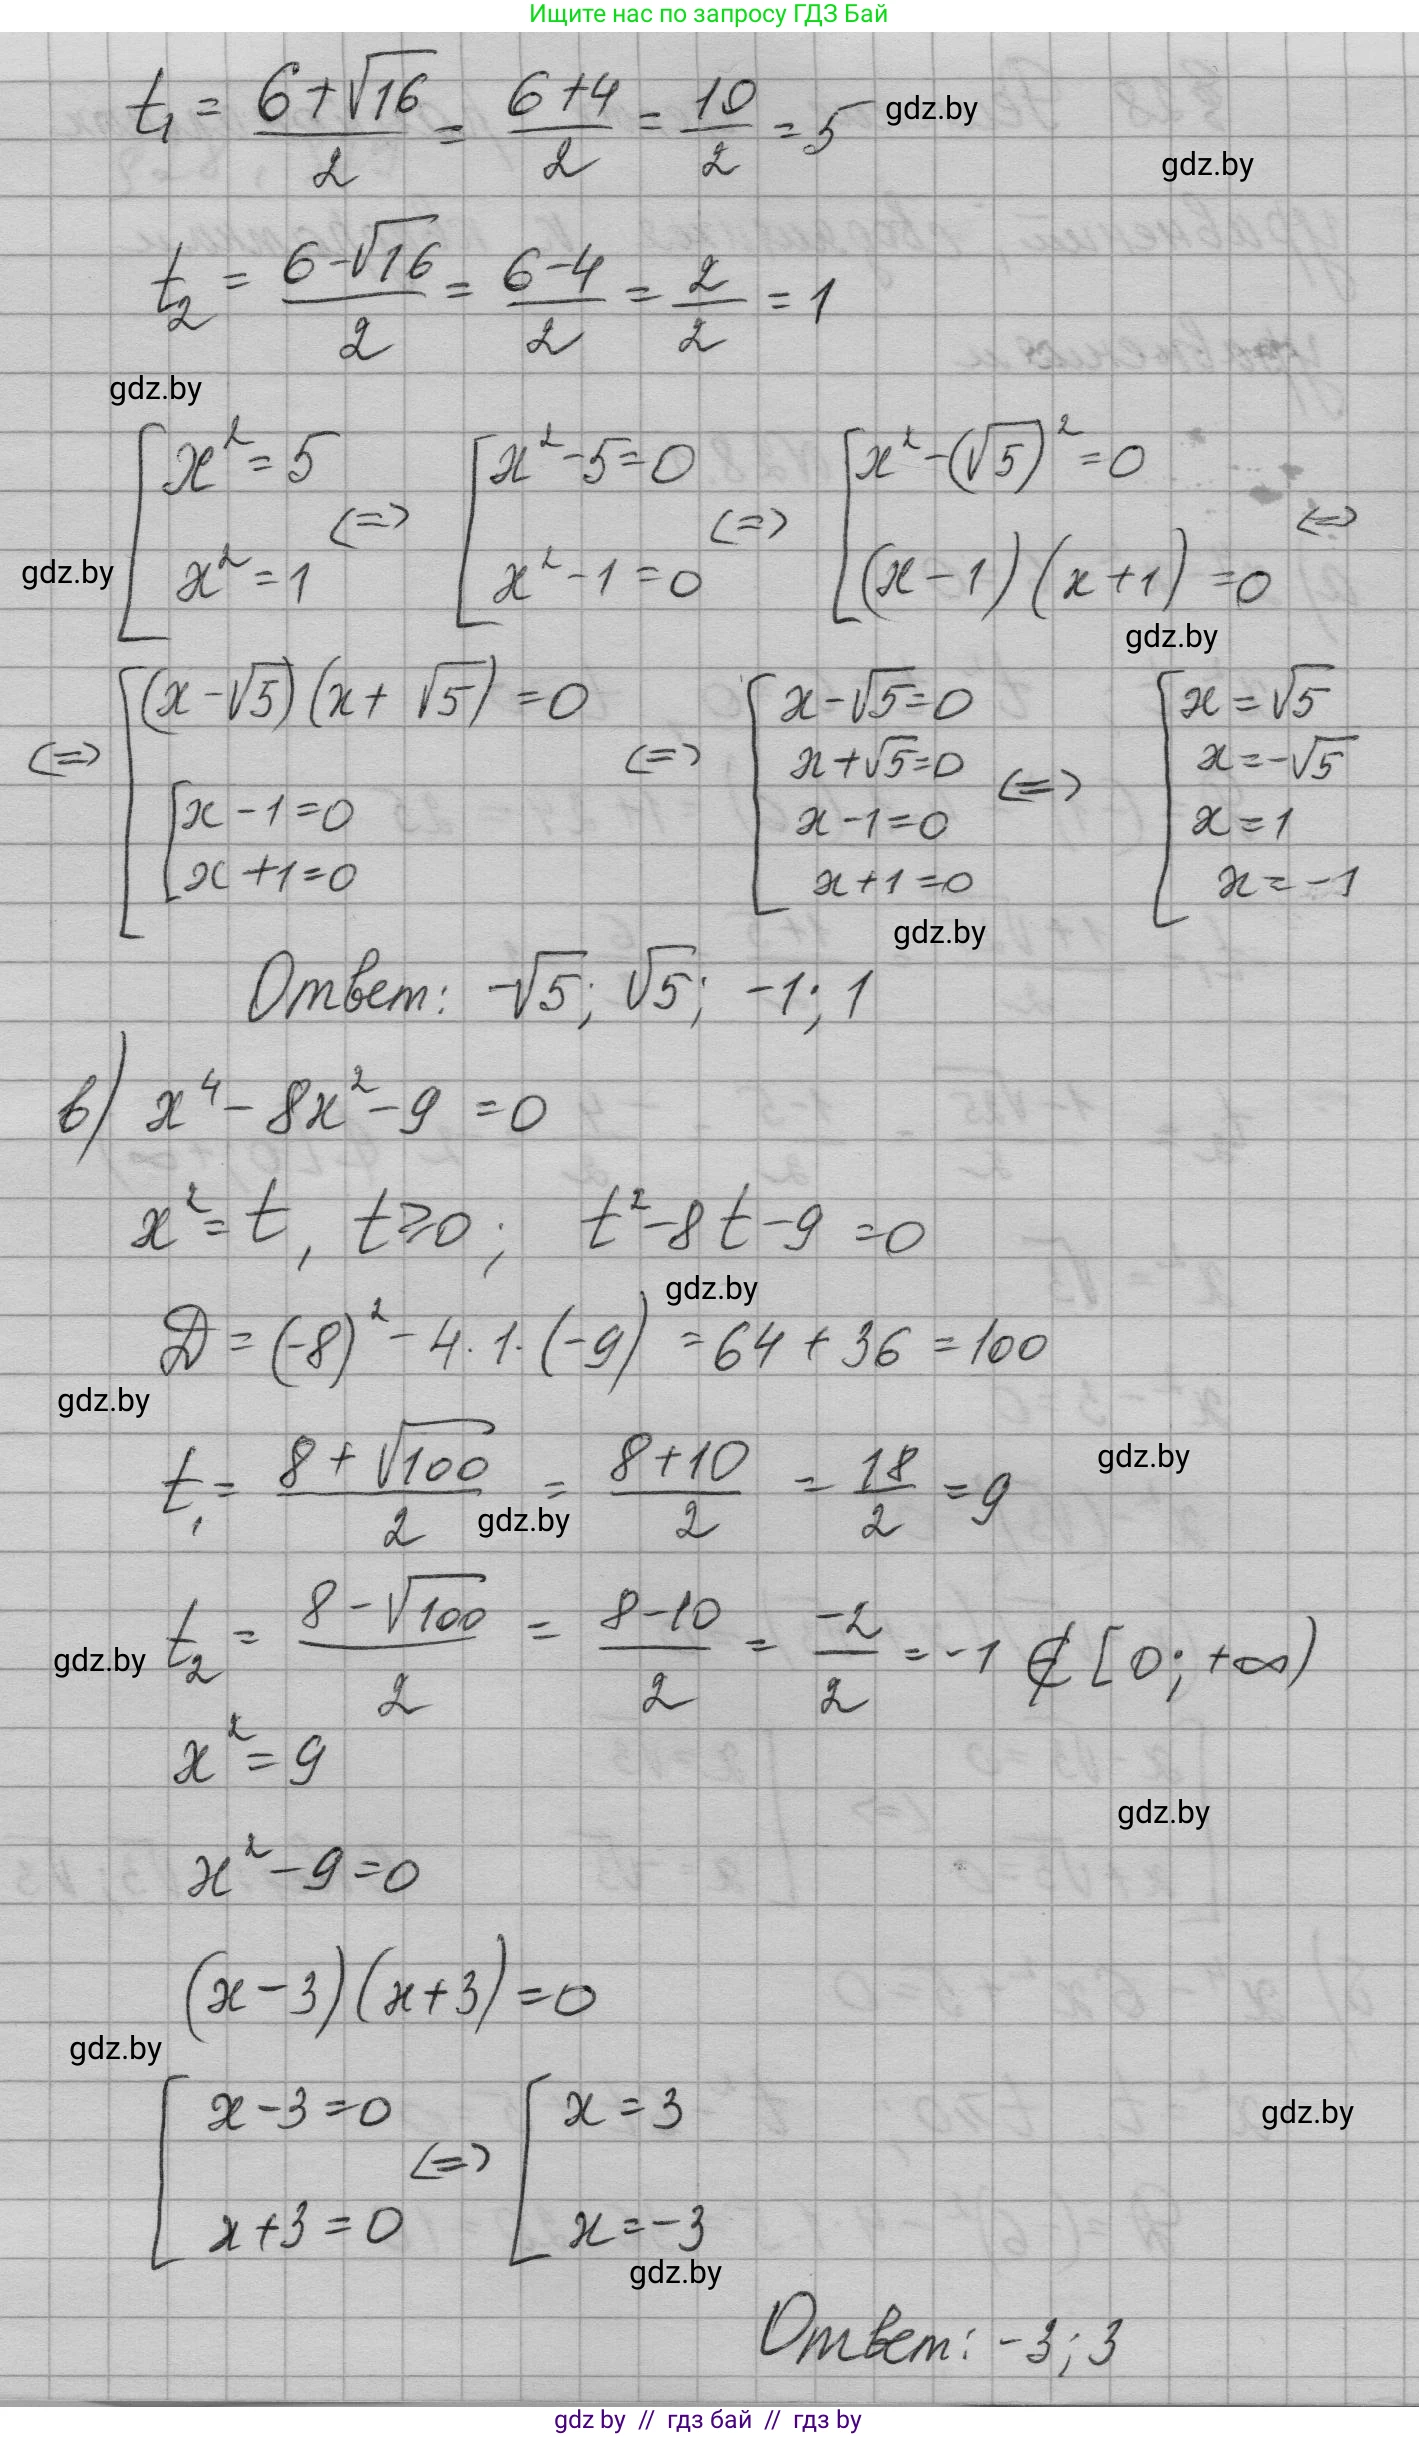 Ищите нас по запросу ГДЗ Бай
t₁ = (6+√16)/2 = (6+4)/2 = 10/2 = 5 gdz.by
gdz.by
t₂ = (6-√16)/2 = (6-4)/2 = 2/2 = 1
gdz.by
[x² = 5 [x² - 5 = 0 [x² - (√5)² = 0
(=) (=) (=)
gdz.by x² = 1 x² - 1 = 0 (x - 1)(x + 1) = 0
gdz.by
[(x - √5)(x + √5) = 0 [x - √5 = 0 [x = √5
(=) (=) x + √5 = 0 (=) x = -√5
[x - 1 = 0 x - 1 = 0 x = 1
x + 1 = 0 x + 1 = 0 x = -1
gdz.by
Ответ: -√5; √5; -1; 1
в) x⁴ - 8x² - 9 = 0
x² = t, t ≥ 0; t² - 8t - 9 = 0
gdz.by
D = (-8)² - 4·1·(-9) = 64 + 36 = 100
gdz.by
t₁ = (8+√100)/2 = (8+10)/2 = 18/2 = 9 gdz.by
gdz.by
gdz.by t₂ = (8-√100)/2 = (8-10)/2 = -2/2 = -1 ∉ [0; +∞)
x² = 9
gdz.by
x² - 9 = 0
(x - 3)(x + 3) = 0
gdz.by
[x - 3 = 0 [x = 3 gdz.by
(=)
x + 3 = 0 x = -3
gdz.by
Ответ: -3; 3
gdz by // гдз бай // гдз by